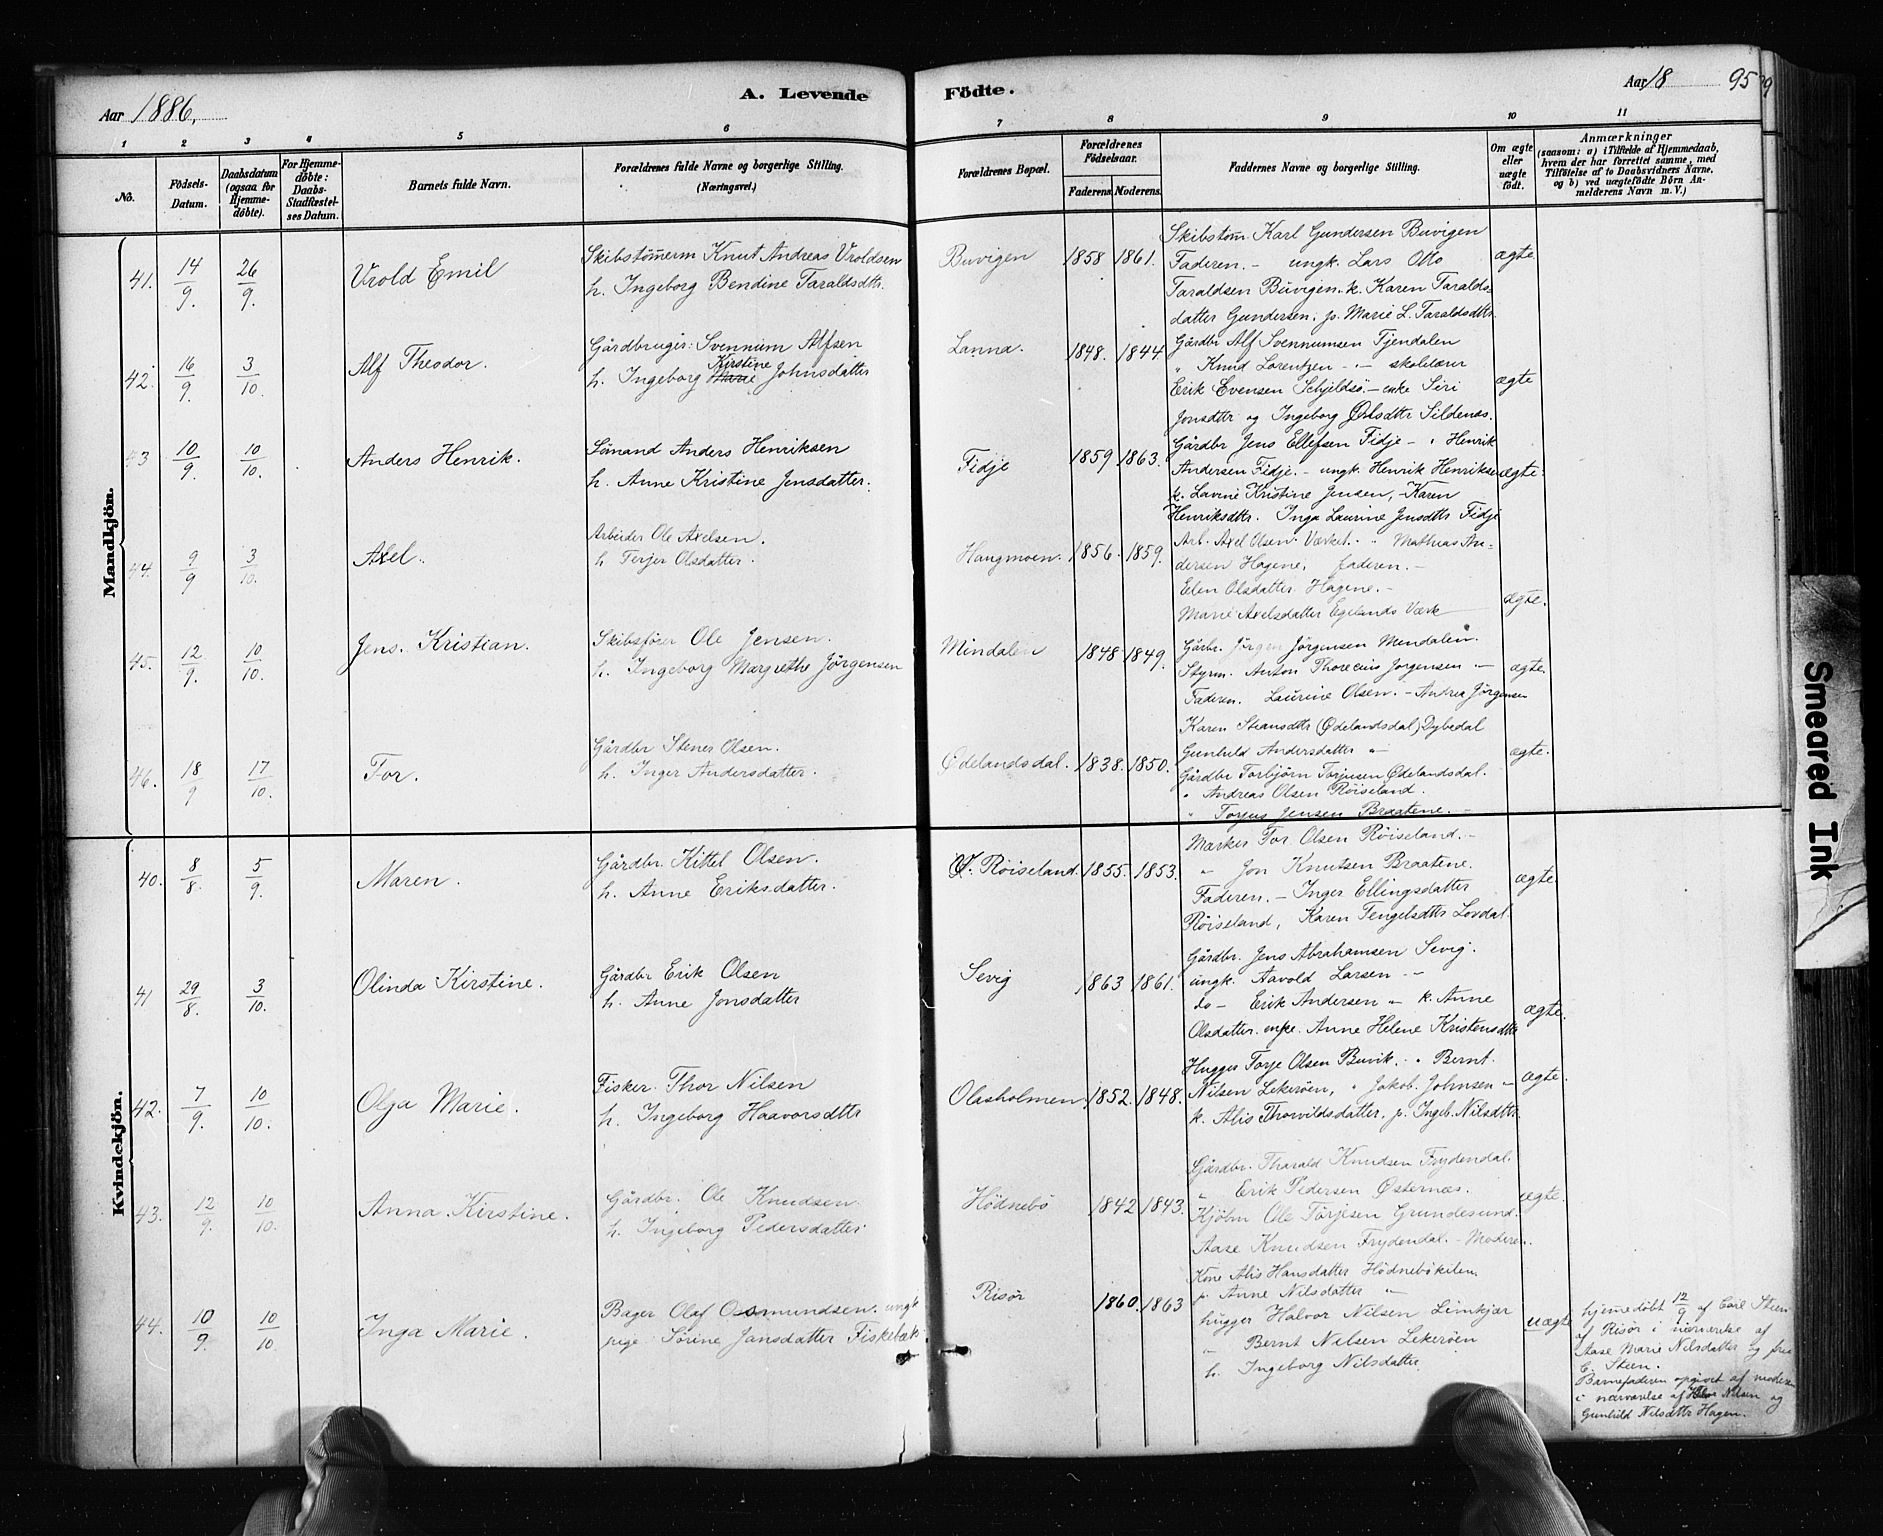 Aar 1886,
A. Levende Födte.
Aar 18
95
1 2 3 4 5 6 7 8 9 10 11
No.
Födsels-Datum.
Daabsdatum (ogsaa for Hjemme-döbte).
For Hjemme-döbte: Daabs-Stadfæstel-ses Datum.
Barnets fulde Navn.
Forældrenes fulde Navne og borgerlige Stilling. (Næringsvei.)
Forældrenes Bopæl.
Forældrenes Födselsaar.
Faderens. Moderens.
Faddernes Navne og borgerlige Stilling.
Om ægte eller uægte födt.
Anmærkninger
(saasom: a) i Tilfælde af Hjemmedaab, hvem der har forrettet samme, med Tilföielse af to Daabsvidners Navne, og b) ved uægtefödte Börn An-melderens Navn m. V.)
Mandkjön.
41. 14/9. 26/9. Vrold Emil
Skibstömerm Knut Andreas Vroldsen
h. Ingeborg Bendine Taraldsdtr.
Buvigen 1858 1861.
Skibstöm. Karl Gundersen Buvigen
Faderen. - ungk. Lars Otto
Taraldsen Buvigen. k. Karen Taralds-
datter Gundersen, p. Marie L. Taraldsdttr.
ægte
42. 16/9. 3/10. Alf Theodor.
Gårdbruger: Svennum Alfsen
h. Ingeborg Kirstine Johnsdatter
Lanna. 1848. 1844
Gårdbr Alf Svennumsen Fjendalen
" Knud Lorentzen - - skolelærer
Erik Evensen Schjeldsö - enke Siri
Jonsdttr og Ingeborg Olsdttr Sildenæs.
ægte
43 10/9. 10/10. Anders Henrik.
Sömand Anders Henriksen
h. Anne Kristine Jensdatter.
Fidje 1859 1863.
Gårdbr Jens Ellefsen Fidje - " Henrik
Andersen Fidje. - ungk. Henrik Henriksen
p. Lavine Kristine Jensen, - Karen
Henriksdttr. Inga Laurine Jensdttr Fidje
ægte.
44. 9/9 3/10. Axel.
Arbeider Ole Axelsen.
h Terjer Olsdatter.
Haugmoen. 1856. 1859.
Arb. Axel Olsen Værket. " Mathias An-
dersen Hagene, faderen. -
Elen Olsdatter Hagene. -
Marie Axelsdatter Egelands Værk
ægte.
45. 12/9. 10/10. Jens. Kristian.
Skibsförer Ole Jensen.
h. Ingeborg Margrethe Jörgensen
Mindalen 1848 1849.
Gårbr. Jörgen Jörgensen Mendalen.
Styrm. Anton Thorecius Jorgensen -
Faderen. Laurine Olsen. - Andrea Jörgensen
ægte.
46. 18/9 17/10. Tor.
Gårdbr Stener Olsen.
h. Inger Andersdatter.
Ödelandsdal. 1838. 1850.
Karen Steansdttr (Ödelandsdal) Dybedal
Gunhild Andersdatter "
Gårdbr Torbjörn Torjusen Ødelandsdal.
" Andreas Olsen Röiseland.
" Torjus Jensen Braatene. -
ægte.
Kvindekjön.
40. 8/8. 5/9. Maren.
Gårdbr. Kittel Olsen.
h. Anne Eriksdatter.
Ø. Röiseland. 1855. 1853.
Mærkes Tor Olsen Röiseland. -
" Jon Knutsen Braatene.
Faderen. - Inger Ellingsdatter
Röiseland, Karen Tengelsdttr Lovdal.
ægte
41 29/8. 3/10. Olinda Kirstine.
Gårdbr Erik Olsen
h. Anne Jonsdatter
Sevig 1863 1861.
Gårdbr. Jens Abrahamsen Sevig.
ungk. Aavold Larsen - -
do - Erik Andersen - k. Anne
Olsdatter. enke. Anne Helene Kristensdttr
ægte.
42. 7/9. 10/10. Olga Marie.
Fisker. Thor Nilsen
h. Ingeborg Haavorsdttr
Olasholmen 1852. 1848.
Hugger Torje Olsen Buvik. - " Bernt
Nilsen Lekeröen, " Jakob Johnsen -
k. Alis Thorvildsdatter, p. Ingeb. Nilsdttr.
ægte.
43. 12/9. 10/10. Anna Kirstine.
Gårdbr. Ole Knudsen
h. Ingeborg Pedersdatter
Hödnebö 1842 1843.
Gårdbr. Tharald Knudsen Frydendal.
" Erik Pedersen Østernæs.
Kjöbm Ole Torjesen Grundesund
Aase Knudsen Frydendal. - Moderen.
Kone Alis Hansdatter Hödnebökilen
ægte.
44. 10/9. 10/10. Inga Marie.
Bager Olaf Osmundsen. ungk
pige Sörine Jansdatter Fiskebæk
Risör 1860. 1863
p. Anne Nilsdatter "
hugger Halvor Nilsen Limkjær
" Bernt Nilsen Lekeröen
h. Ingeborg Nilsdatter.
uægte
hjemmedöbt 12/9 af Carl Steen
af Risör i nærværelse af
Aase Marie Nilsdatter og frue
C. Steen.
Barnefaderen opgivet af moderen
i nærværelse af Nilsen og
Gunhild Nilsdttr Hagen.
Smeared Ink